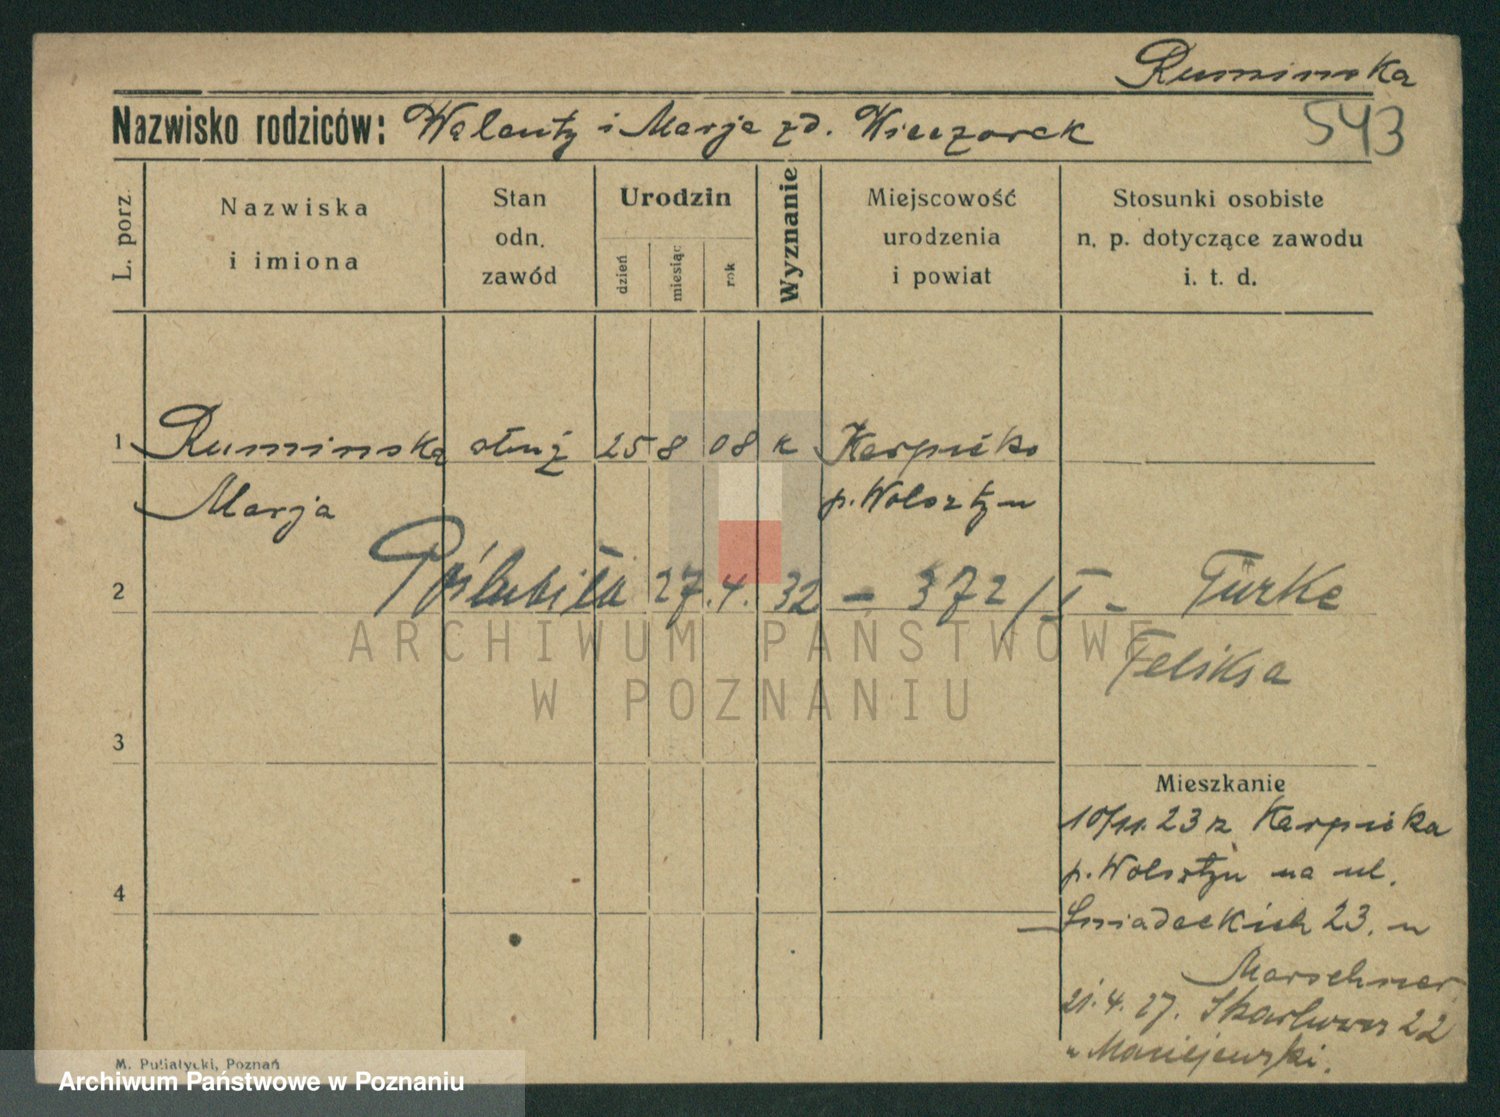 Ruminska
543
Nazwisko rodziców: Walenty i Marja zd. Wieczorek
L. porz.
Nazwiska
i imiona
Stan
odn.
zawód
Urodzin
dzień
miesiąc
rok
Wyznanie
Miejscowość
urodzenia
i powiat
Stosunki osobiste
n. p. dotyczące zawodu
i. t. d.
1 Ruminska służ 25 8 08 k Karpicko
Marja p. Wolsztyn
2 Poślubiła 27.4.32 - 372/I - Türke
Feliksa
ARCHIWUM PAŃSTWOWE
W POZNANIU
3
Mieszkanie
10/11.23 z Karpicka
p. Wolsztyn na ul.
4
Sniadeckich 23. u
Marschner
21.4.27. 22
u Maciejewski.
M. Putiatycki, Poznań
Archiwum Państwowe w Poznaniu